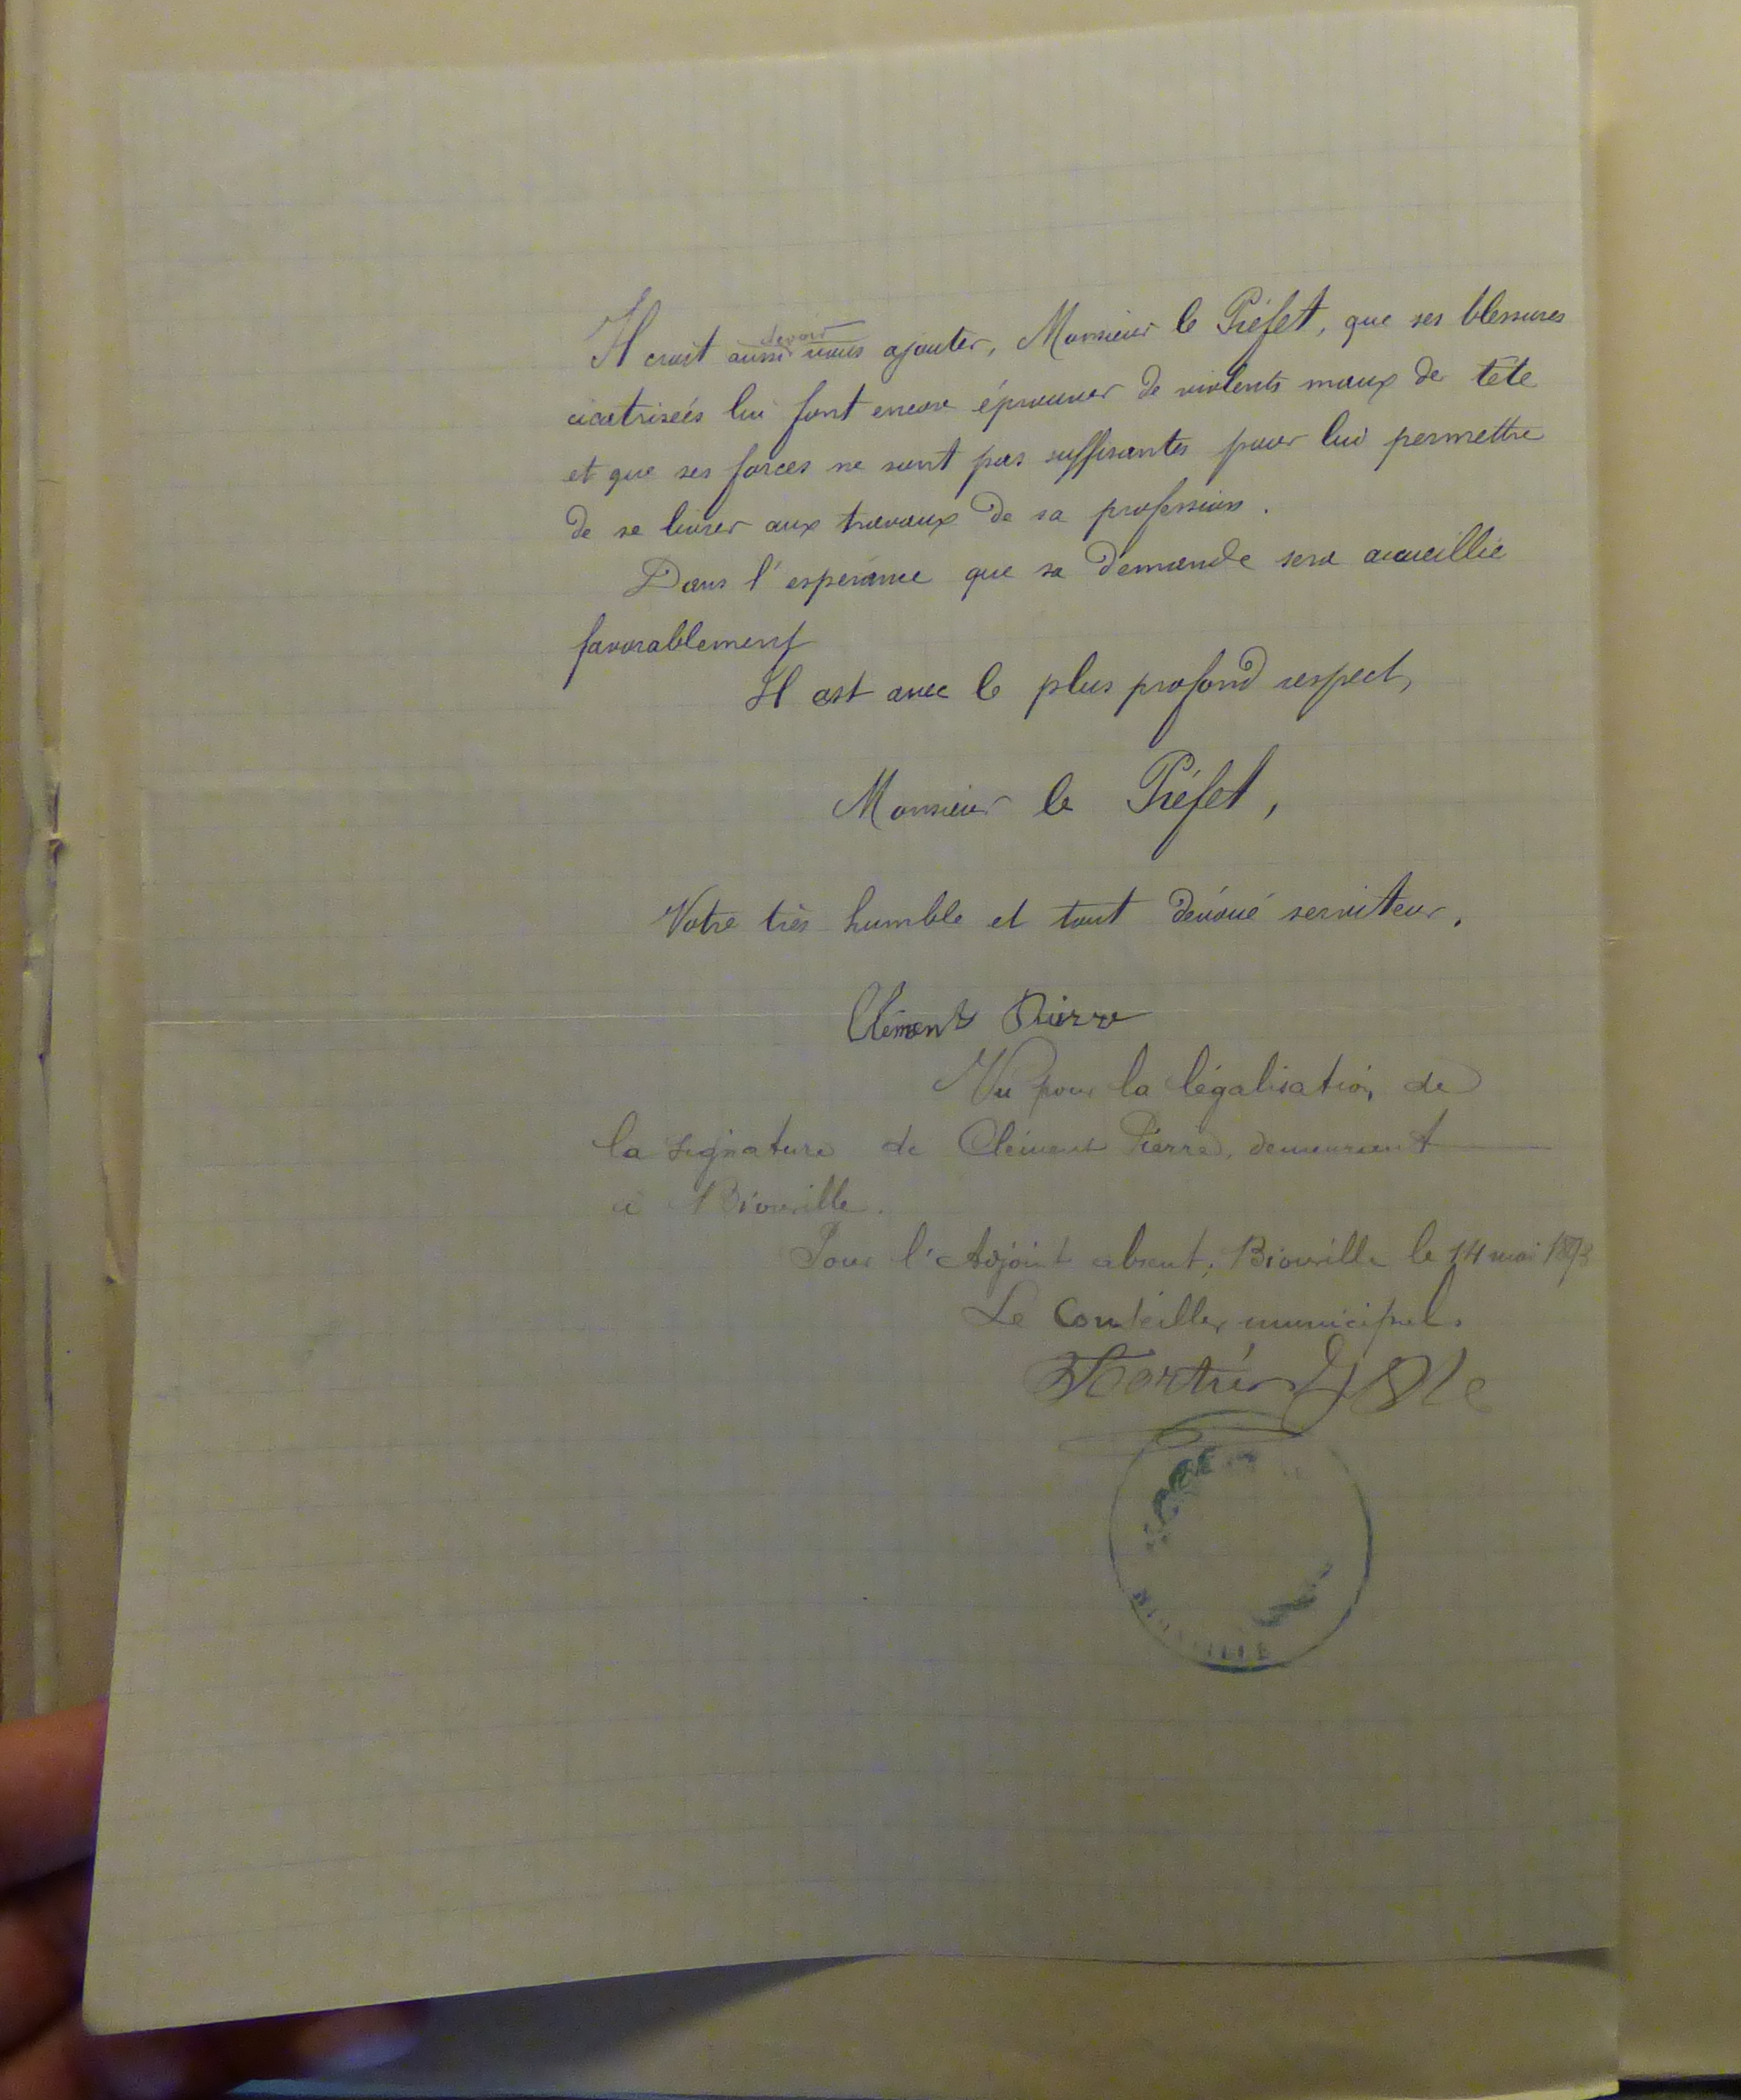 Il croit aussi devoir vous ajouter, Monsieur le Préfet, que ses blessures
cicatriseés lui font encore éprouver de violents maux de tête
et que ses forces ne sont pas suffisantes pour lui permettre
de se livrer aux travaux de sa profession.
Dans l'espérance que sa demande sera accueillie
favorablement
Il est avec le plus profond respect,
Monsieur le Préfet,
Votre très humble et tout dévoué serviteur.
Clément Pierre
Vu pour la légalisation de
la signature de Clément Pierre, demeurant
à Bionville.
Pour l'Adjoint absent, Bionville le 14 mai
Le Conseiller municipal.